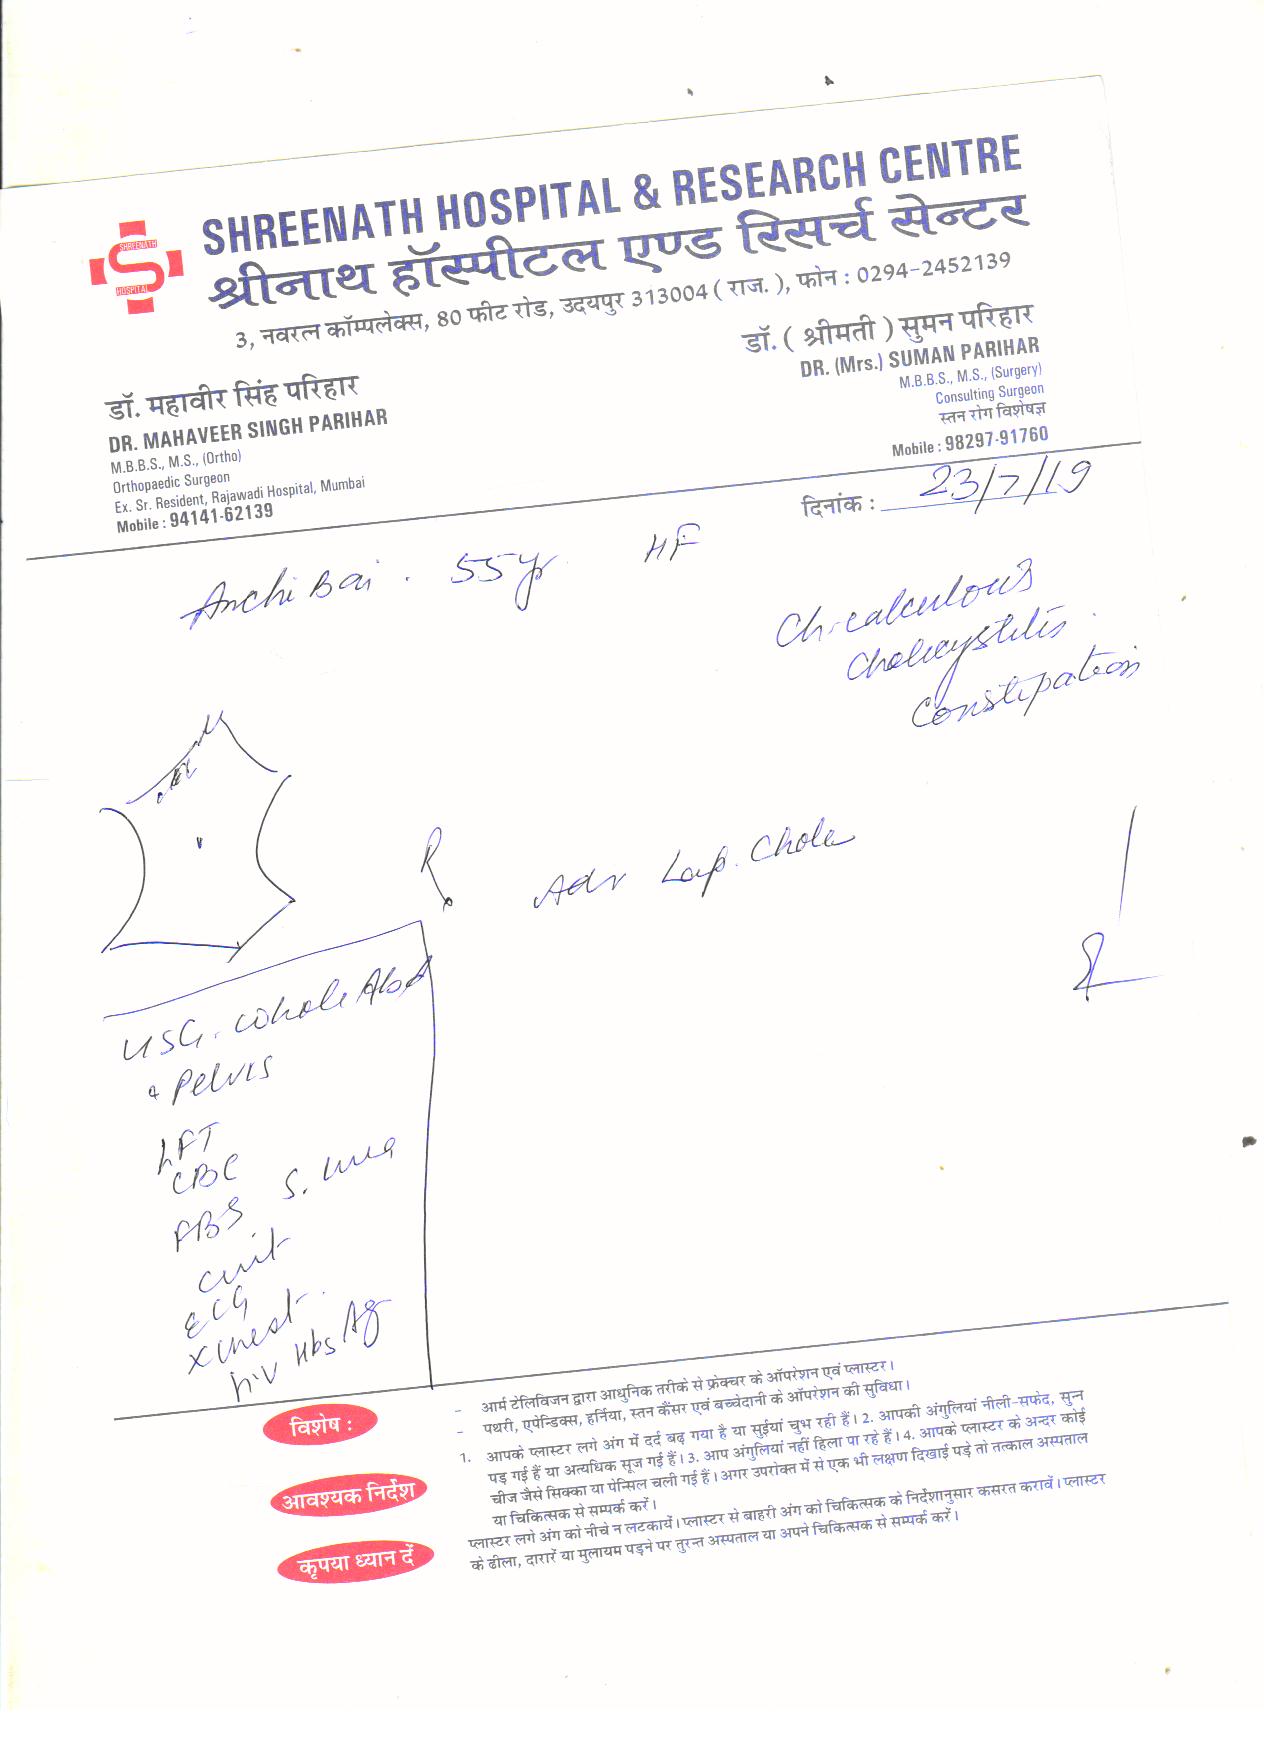 SHREENATH HOSPITAL & RESEARCH CENTRE
श्रीनाथ हॉस्पीटल एण्ड रिसर्च सेन्टर
3, नवरत्न कॉम्पलेक्स, 80 फीट रोड, उदयपुर 313004 ( राज. ), फोन : 0294-2452139
SHREENATH
HOSPITAL
डॉ. महावीर सिंह परिहार
DR. MAHAVEER SINGH PARIHAR
M.B.B.S., M.S., (Ortho)
Orthopaedic Surgeon
Ex. Sr. Resident, Rajawadi Hospital, Mumbai
Mobile : 94141-62139
डॉ. ( श्रीमती ) सुमन परिहार
DR. (Mrs.) SUMAN PARIHAR
M.B.B.S., M.S., (Surgery)
Consulting Surgeon
स्तन रोग विशेषज्ञ
Mobile : 98297-91760
दिनांक : 23/7/19
Anchi Bai . 55yr HF
Ch. calculous
Cholecystitis
Constipation
R
Adv Lap. Chole
USG. Whole Abd
& Pelvis
LFT
CBC
FBS S. urea
Creat
ECG
X Chest
hiv Hbs Ag
विशेष :
- आर्म टेलिविजन द्वारा आधुनिक तरीके से फ्रेक्चर के ऑपरेशन एवं प्लास्टर।
- पथरी, एपेन्डिक्स, हर्निया, स्तन कैंसर एवं बच्चेदानी के ऑपरेशन की सुविधा।
आवश्यक निर्देश
1. आपके प्लास्टर लगे अंग में दर्द बढ़ गया है या सुईयां चुभ रही हैं। 2. आपकी अंगुलियां नीली-सफेद, सुन्न
पड़ गई हैं या अत्यधिक सूज गई हैं। 3. आप अंगुलियां नहीं हिला पा रहे हैं। 4. आपके प्लास्टर के अन्दर कोई
चीज जैसे सिक्का या पेन्सिल चली गई हैं। अगर उपरोक्त में से एक भी लक्षण दिखाई पड़े तो तत्काल अस्पताल
या चिकित्सक से सम्पर्क करें।
कृपया ध्यान दें
प्लास्टर लगे अंग को नीचे न लटकायें। प्लास्टर से बाहरी अंग को चिकित्सक के निर्देशानुसार कसरत करावें। प्लास्टर
के ढीला, दारारें या मुलायम पड़ने पर तुरन्त अस्पताल या अपने चिकित्सक से सम्पर्क करें।